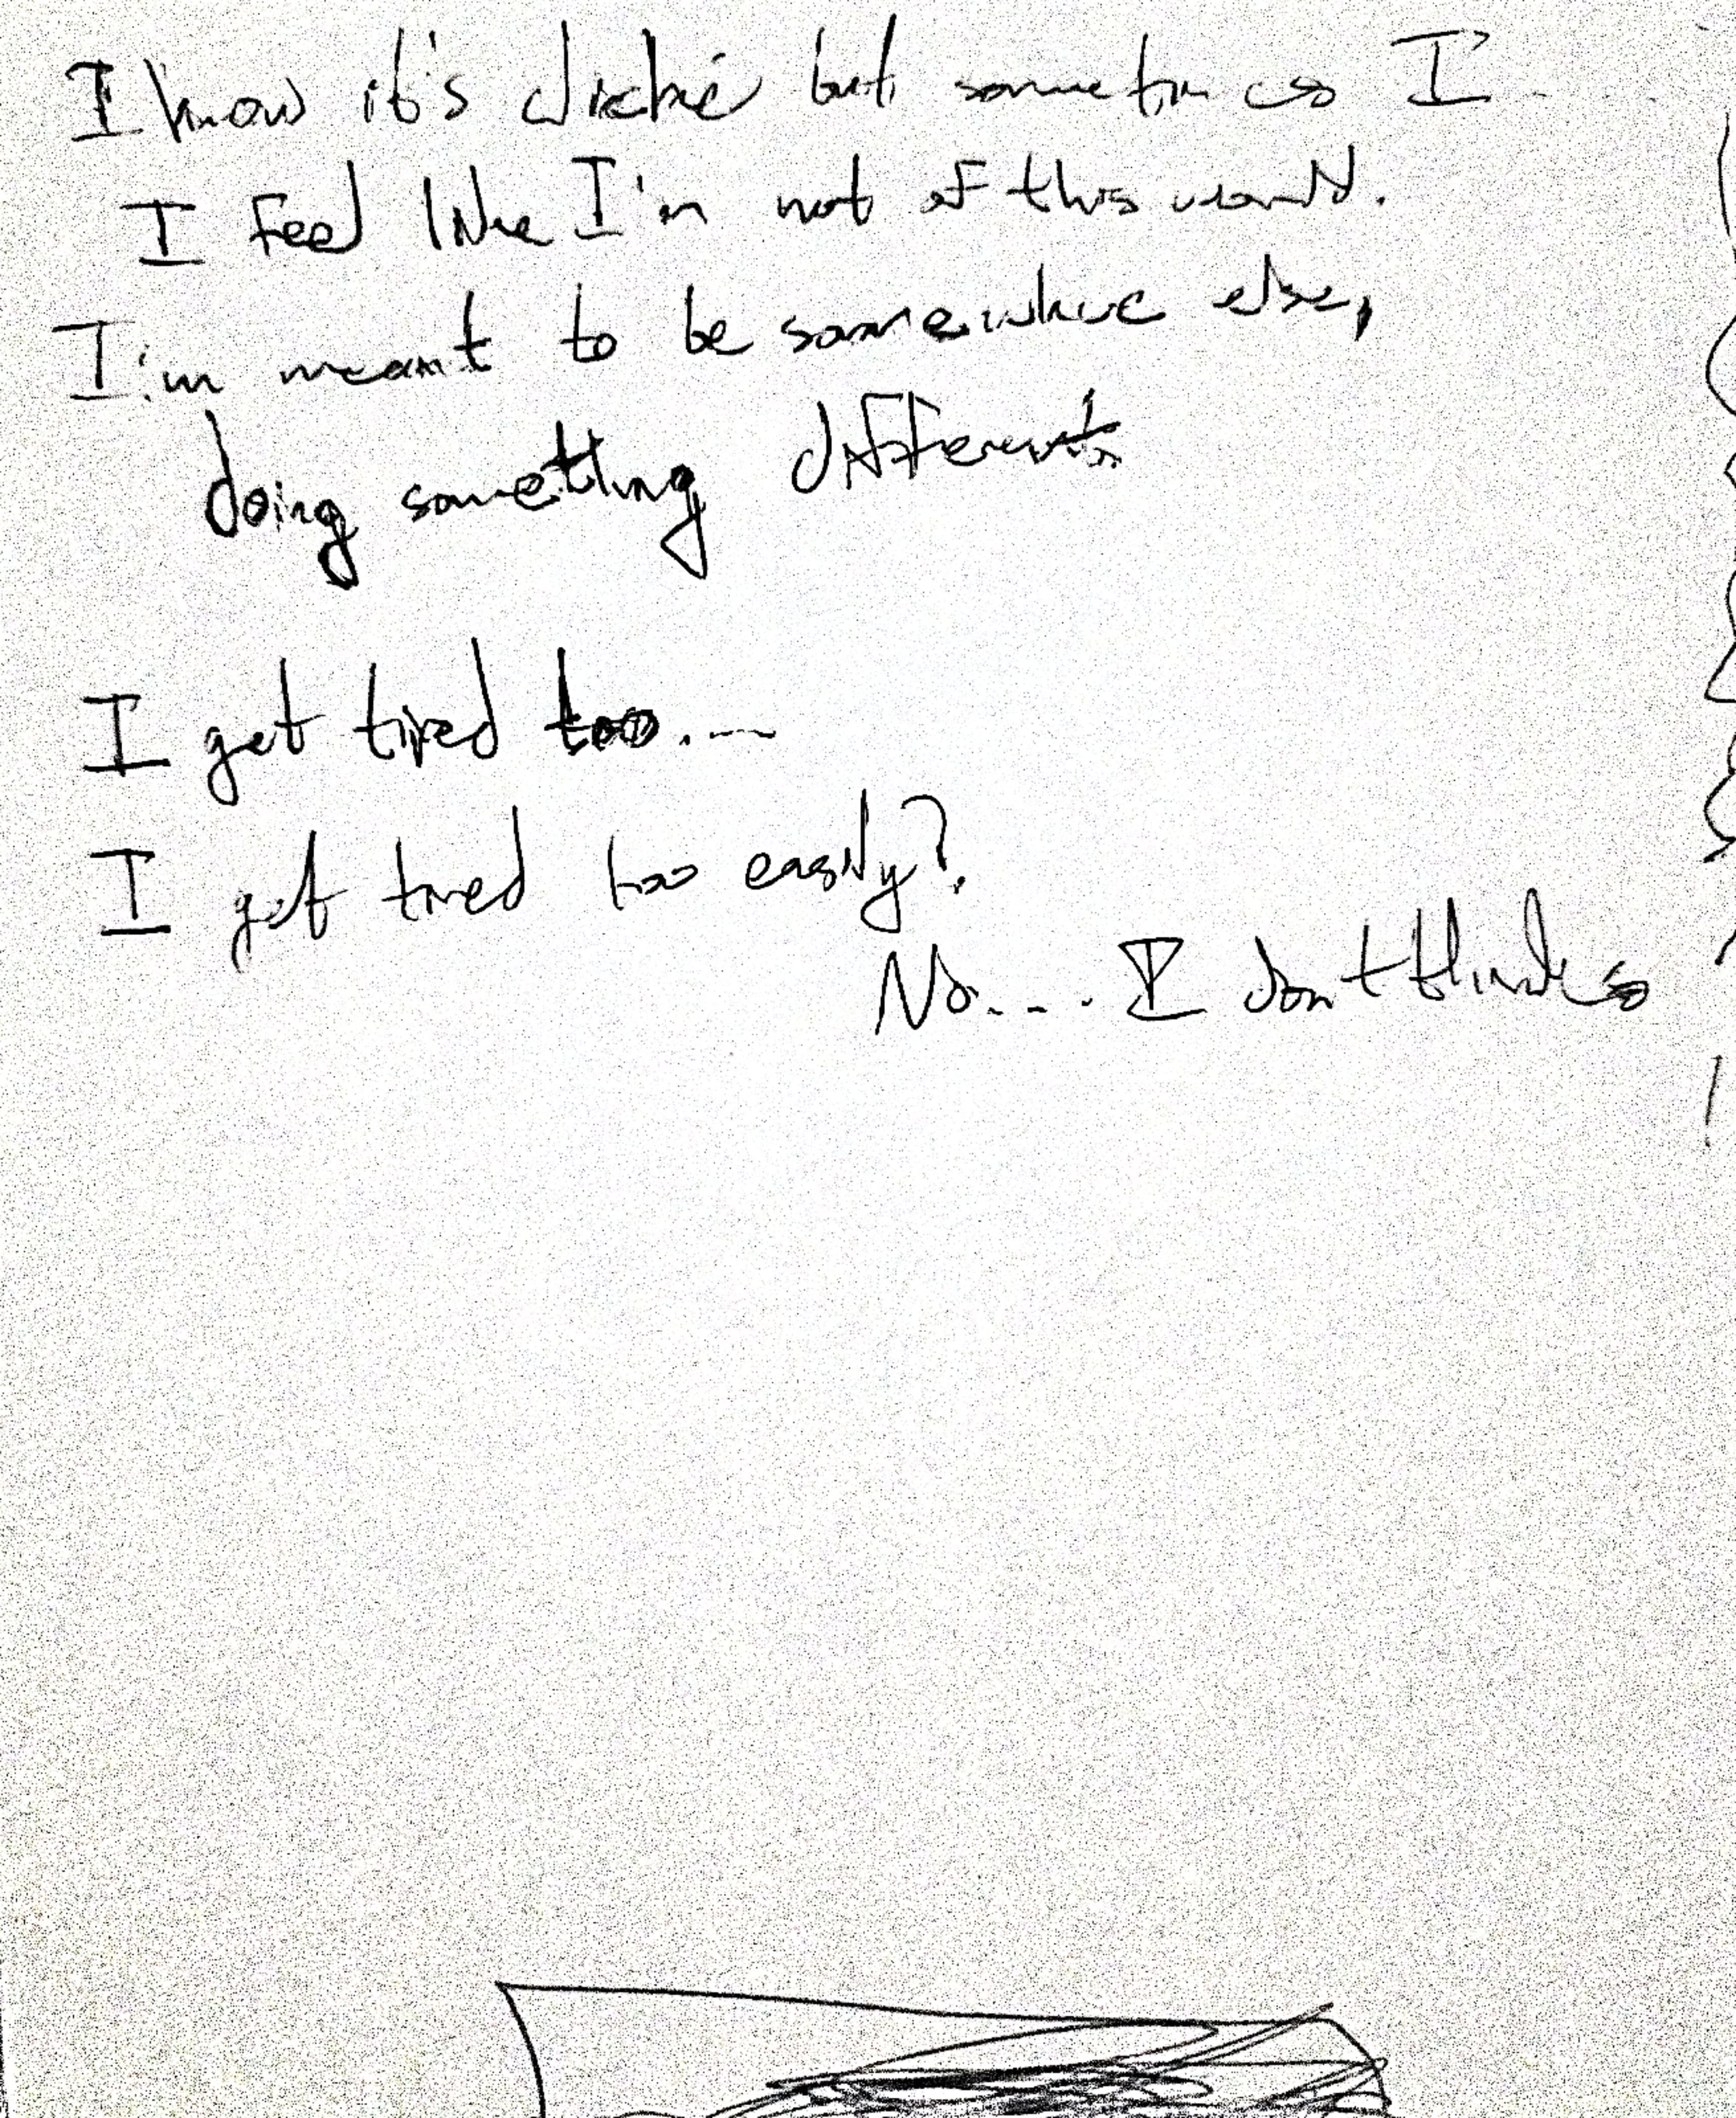 I know it's cliché but sometimes I
I feel like I'm not of this world.
I'm meant to be somewhere else,
doing something different
I get tired too....
I get tired too easily?
No.... I don't think so